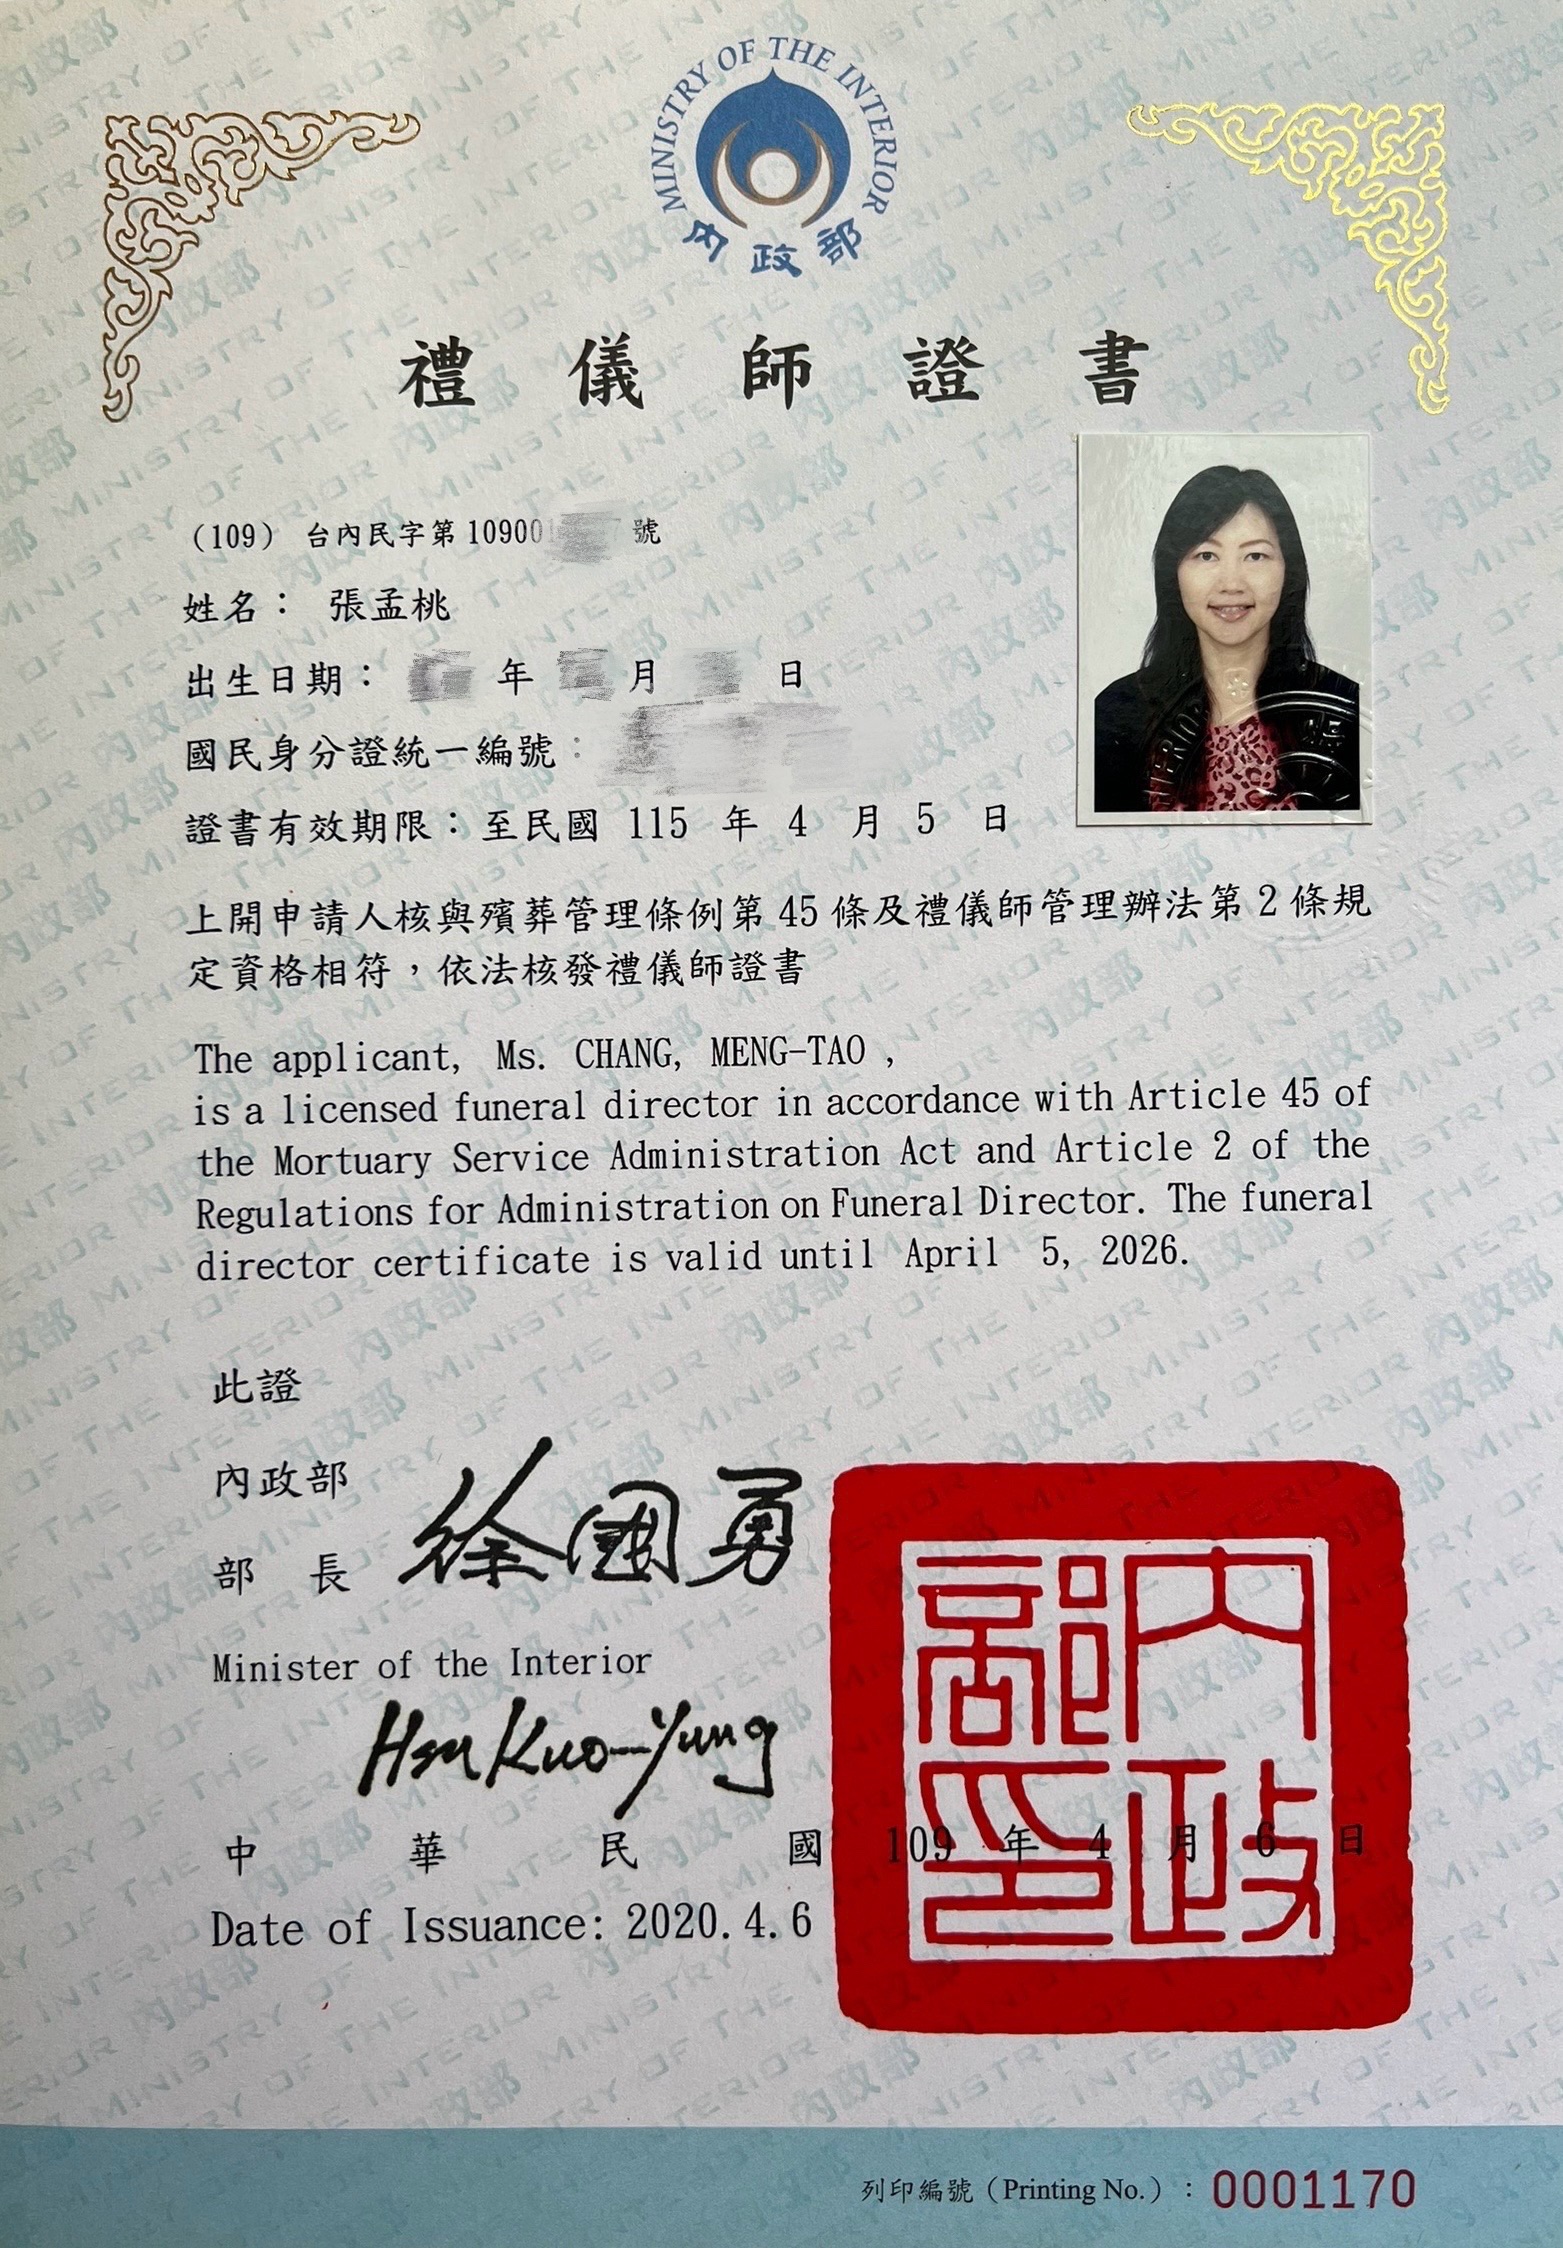 MINISTRY OF THE INTERIOR
內政部
禮儀師證書
(109) 台內民字第10900 號
姓名： 張孟桃
出生日期： 年 月 日
國民身分證統一編號：
證書有效期限：至民國 115 年 4 月 5 日
上開申請人核與殯葬管理條例第45條及禮儀師管理辦法第2條規
定資格相符，依法核發禮儀師證書
The applicant, Ms. CHANG, MENG-TAO ,
is a licensed funeral director in accordance with Article 45 of
the Mortuary Service Administration Act and Article 2 of the
Regulations for Administration on Funeral Director. The funeral
director certificate is valid until April 5, 2026.
此證
內政部
部長 徐國勇
Minister of the Interior
Hsu Kuo-Yung
內政部印
中華民國 109 年 4 月 6 日
Date of Issuance: 2020.4.6
列印編號（Printing No.）：0001170